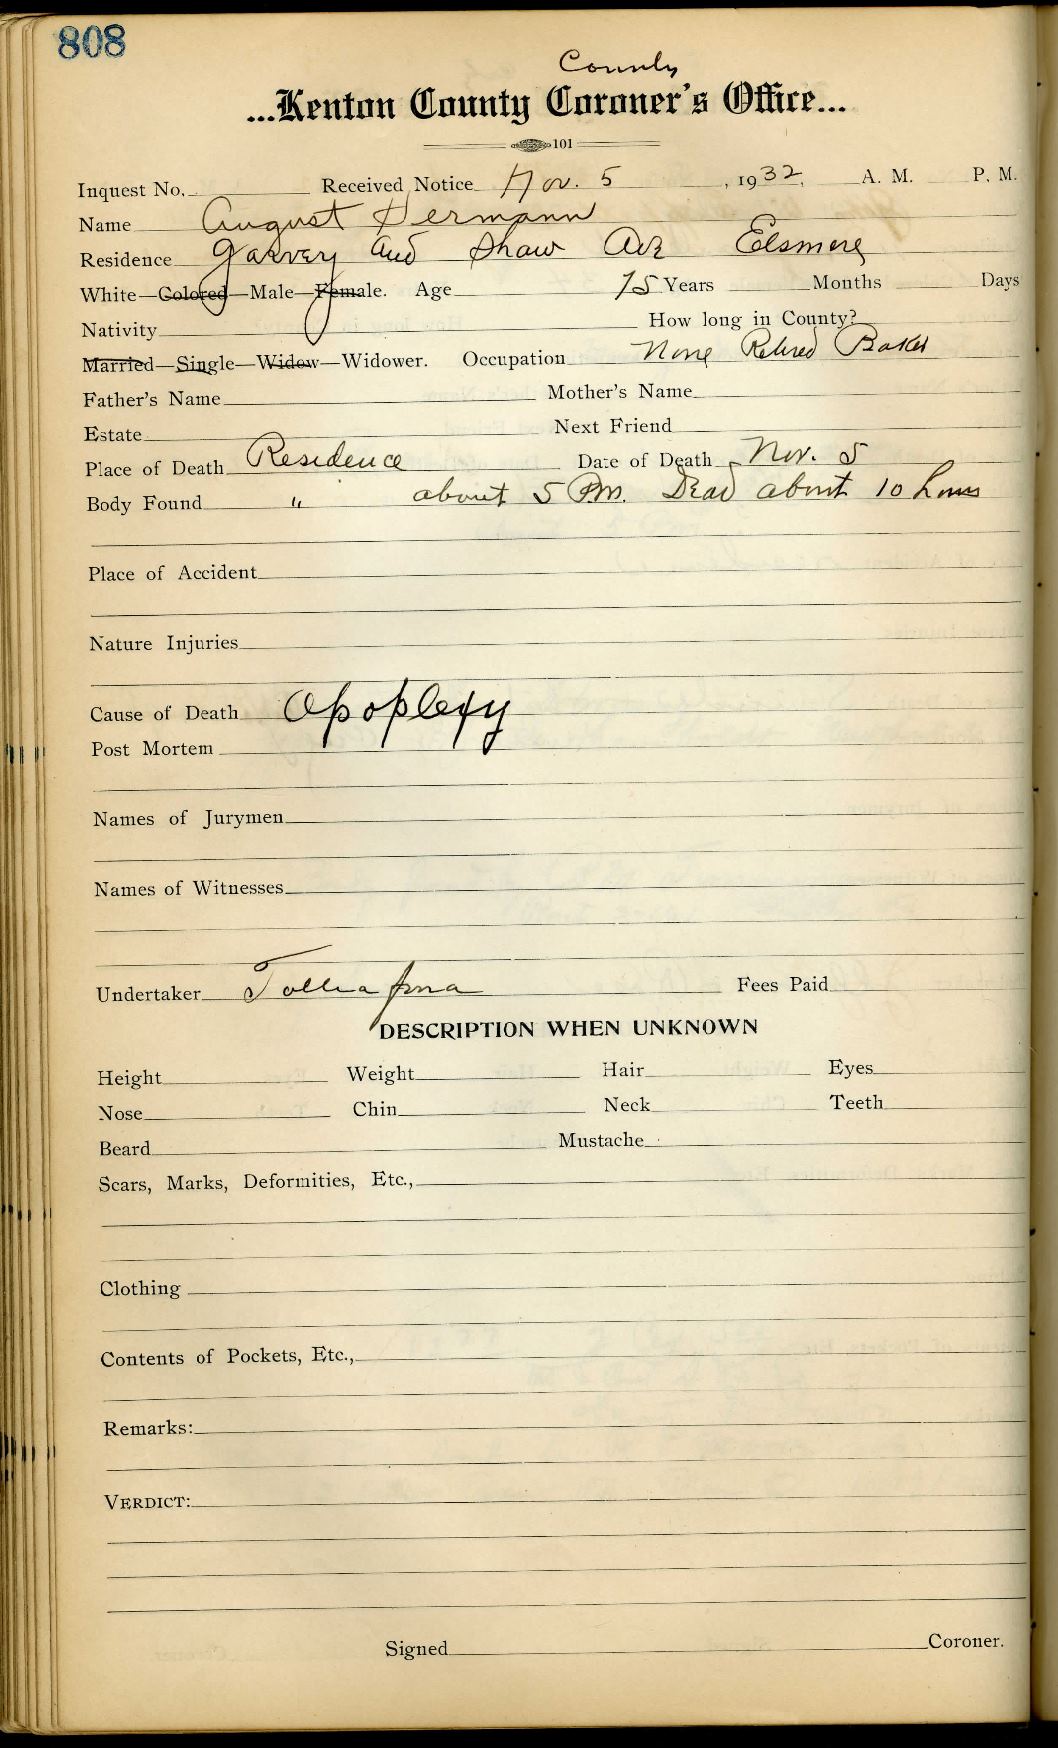 808
County
...Kenton County Coroner's Office...
101
Inquest No. Received Notice Nov. 5, 1932, A. M. P. M.
Name August Hermann
Residence Garvey and Shaw Ave Elsmere
White—Colored—Male—Female. Age 75 Years Months Days
Nativity How long in County?
Married—Single—Widow—Widower. Occupation None Retired Baker
Father's Name Mother's Name
Estate Next Friend
Place of Death Residence Date of Death Nov. 5
Body Found " about 5 Pm. Dead about 10 hours
Place of Accident
Nature Injuries
Cause of Death Apoplexy
Post Mortem
Names of Jurymen
Names of Witnesses
Undertaker Fees Paid
DESCRIPTION WHEN UNKNOWN
Height Weight Hair Eyes
Nose Chin Neck Teeth
Beard Mustache
Scars, Marks, Deformities, Etc.,
Clothing
Contents of Pockets, Etc.,
Remarks:
VERDICT:
Signed Coroner.